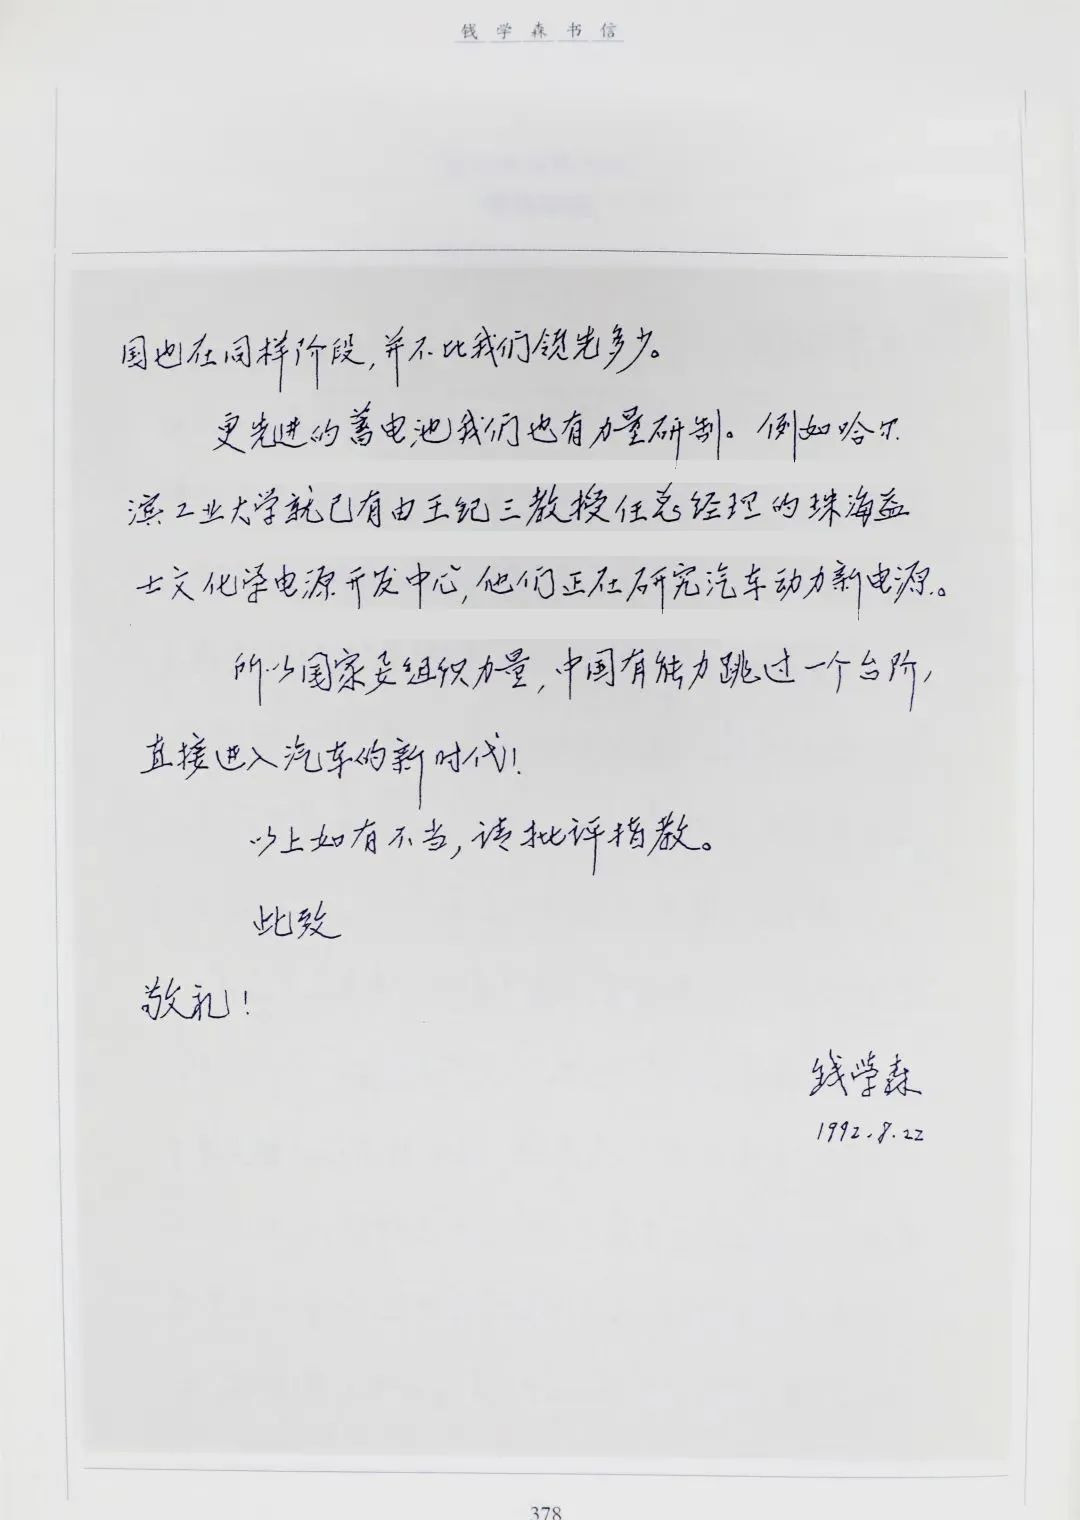 钱学森书信
国也在同样阶段，并不比我们领先多少。
更先进的蓄电池我们也有力量研制。例如哈尔
滨工业大学就已有由王纪三教授任总经理的珠海益
士文化学电源开发中心，他们正在研究汽车动力新电源。
所以国家要组织力量，中国有能力跳过一个台阶，
直接进入汽车的新时代！
以上如有不当，请批评指教。
此致
敬礼！
钱学森
1992.8.22
378